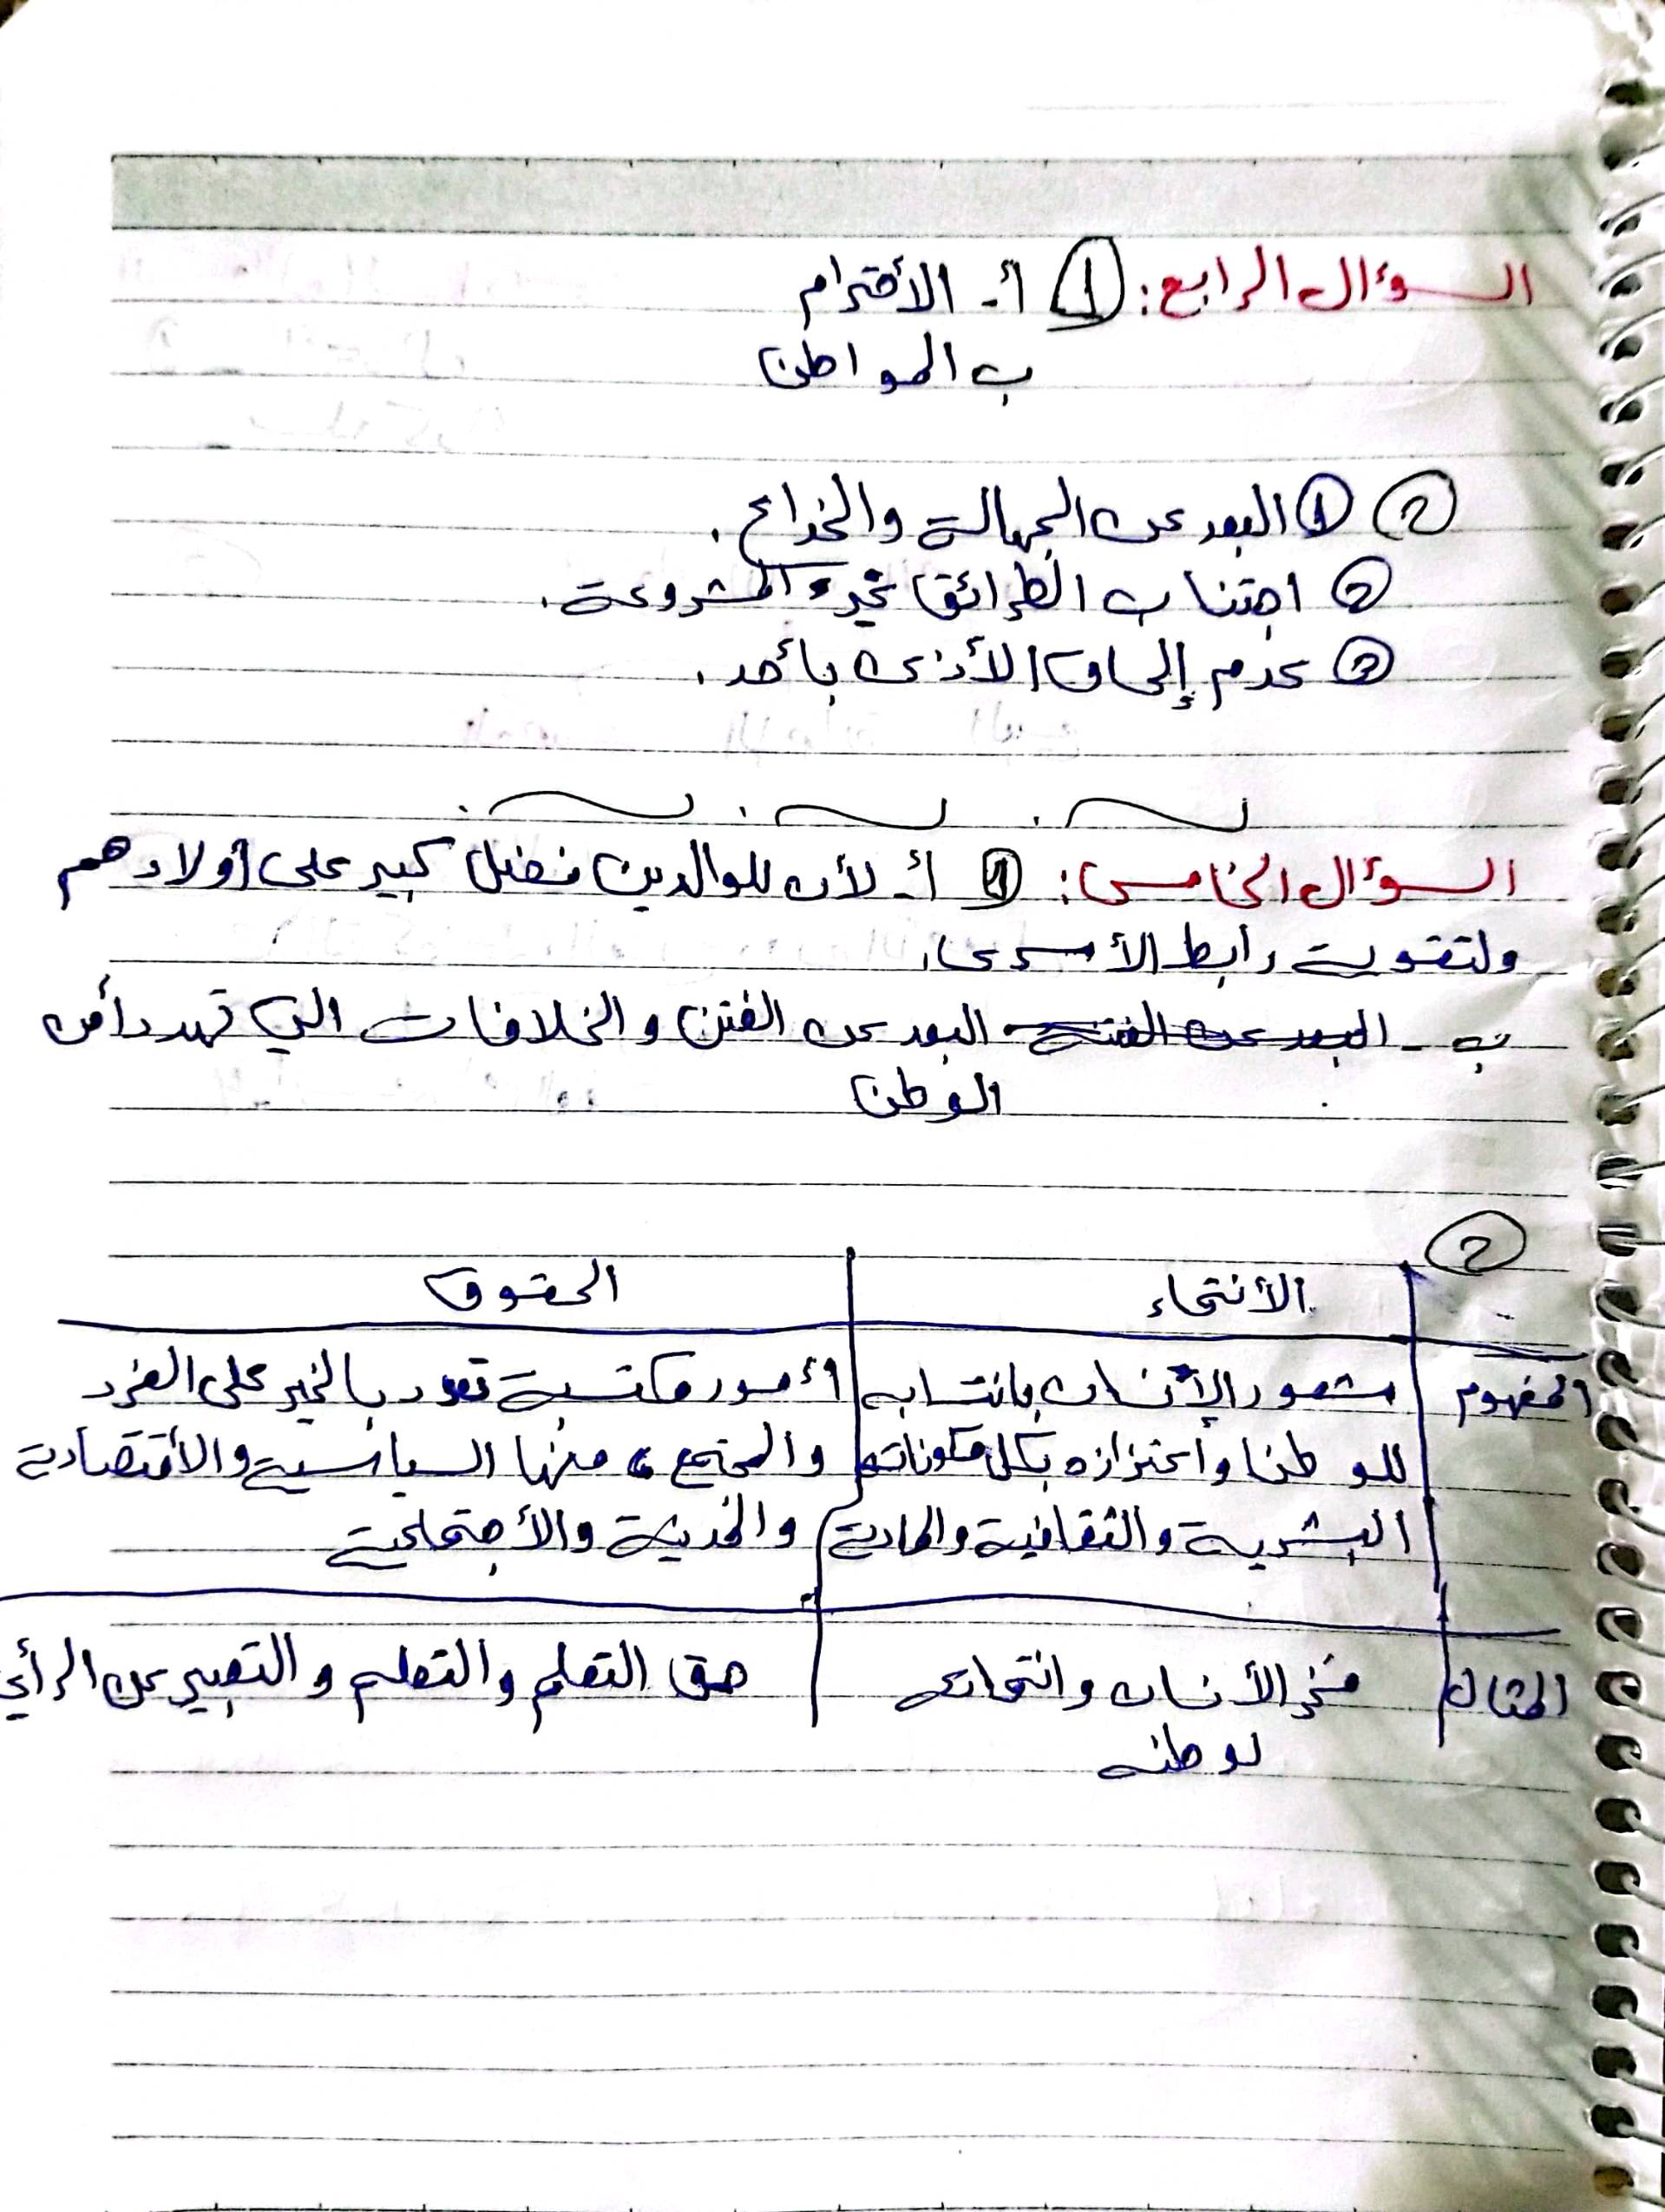 السؤال الرابع: ① أ- الأحترام
ب المواطن
② ① البعد عن الجهالة والخداع.
② اجتناب الطرائق غير المشروعة.
③ عدم إلحاق الأذى بأحد.
السؤال الخامس: ① أ- لأن للوالدين فضل كبير على أولادهم
ولتقوية رابط الأسرى.
ب- البعد عن الفتن والخلافات التي تهدد أمن
الوطن
②
الأنتماء الحقوق
المفهوم شعور الإنسان بانتسابه أمور مكتسبة تعود بالخير على الفرد
للوطن واعتزازه بكل مكوناته والمجتمع، منها السياسية والأقتصادية
البشرية والثقافية والمادية والمدنية والأجتماعية
المثال فخر الأنسان وانتمائه حق التعلم والتعلم والتعبير عن الرأي
لوطنه